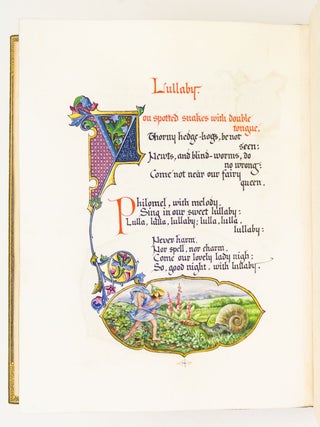 Lullaby.
You spotted snakes with double
tongue.
Thorny hedge-hogs, be not
seen:
Newts, and blind-worms, do
no wrong:
Come not near our fairy
queen.
Philomel, with melody,
Sing in our sweet lullaby:
Lulla, lulla, lullaby; lulla, lulla,
lullaby:
Never harm,
Nor spell, nor charm,
Come our lovely lady nigh:
So, good night, with lullaby.